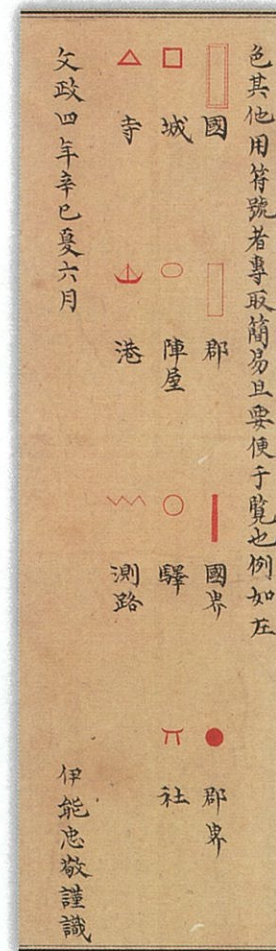 色其他用符號者專取簡易且要便于覧也例如左
國 郡 國界 郡界
城 陣屋 驛 社
寺 港 測路
文政四年辛巳夏六月 伊能忠敬謹識